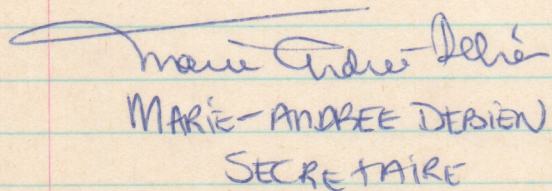 Marie Andrée Debien
MARIE-ANDREE DEBIEN
SECRETAIRE